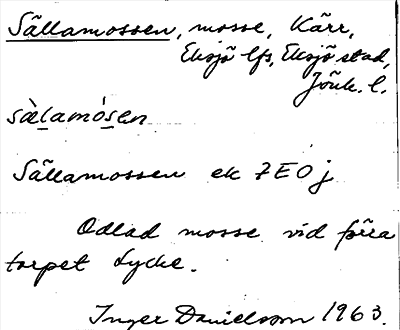 Sällamossen, mosse, Kärr,
Eksjö lfs, Eksjö stad,
Jönk. l.
sàlamósen
Sällamossen ek 7E0j
Odlad mosse vid förra
torpet Lycke.
Inger Danielsson 1963.